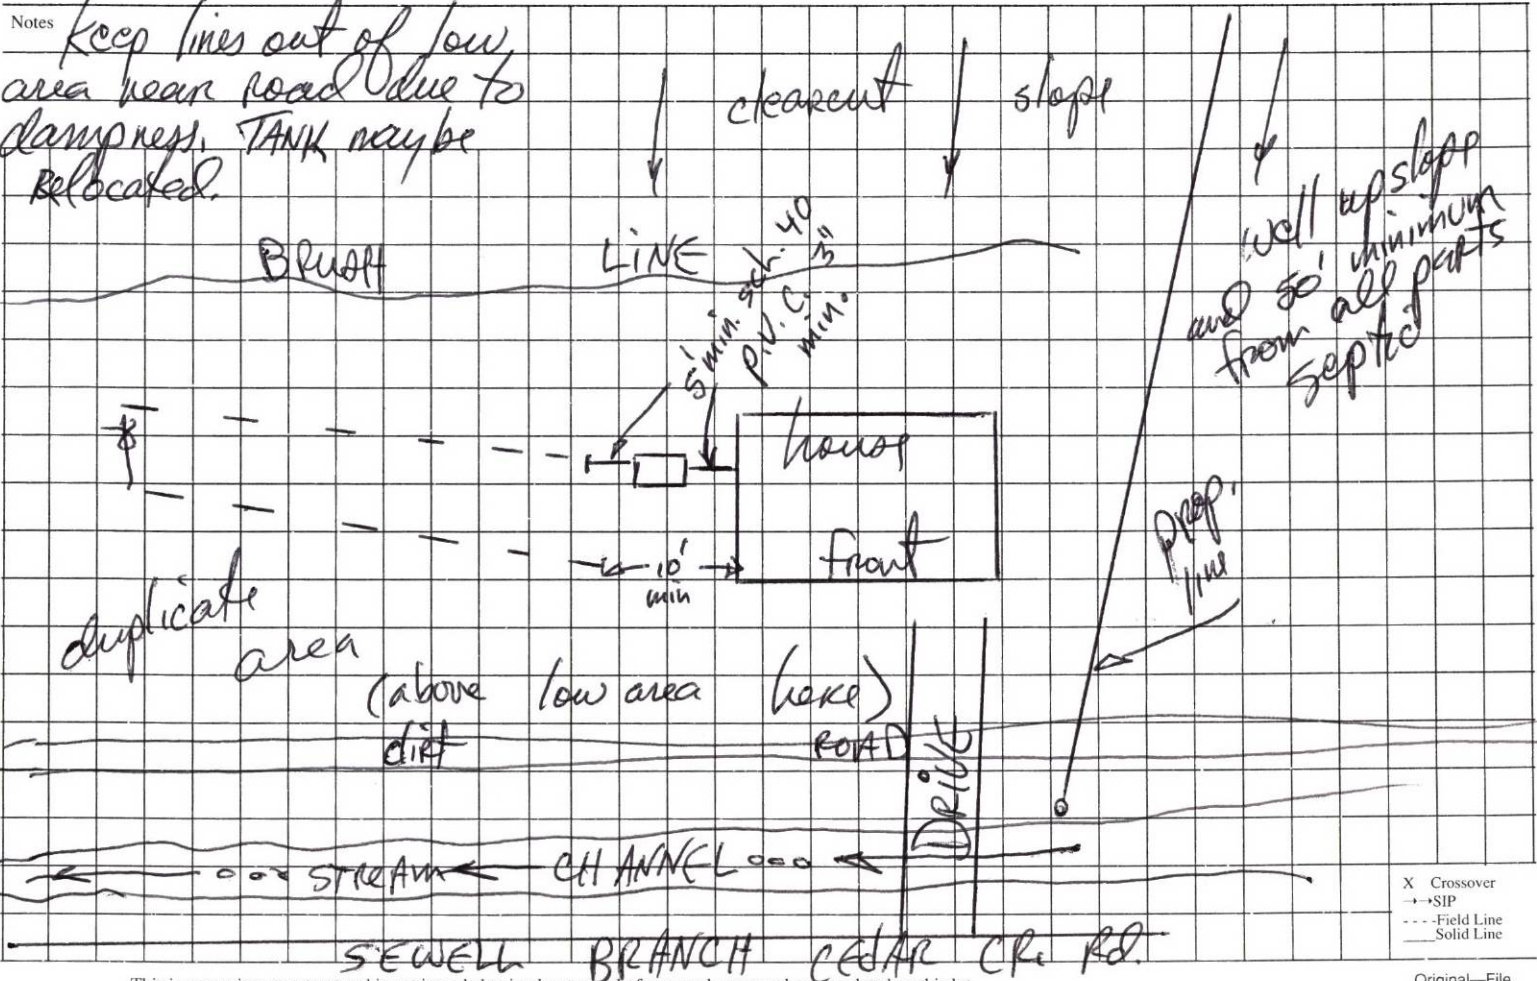 Notes
Keep lines out of low
area near road due to
dampness. TANK may be
Relocated.
clearcut
slope
BRUSH LINE
5' min. sch. 40
P.V.C. 3"
min.
well upslope
and 50' minimum
from all parts
septic
house
front
10'
min
prop.
line
duplicate
area
(above low area here)
dirt ROAD
DRIVE
STREAM CHANNEL
SEWELL BRANCH CEDAR CR. Rd.
X Crossover
SIP
Field Line
Solid Line
Original—File